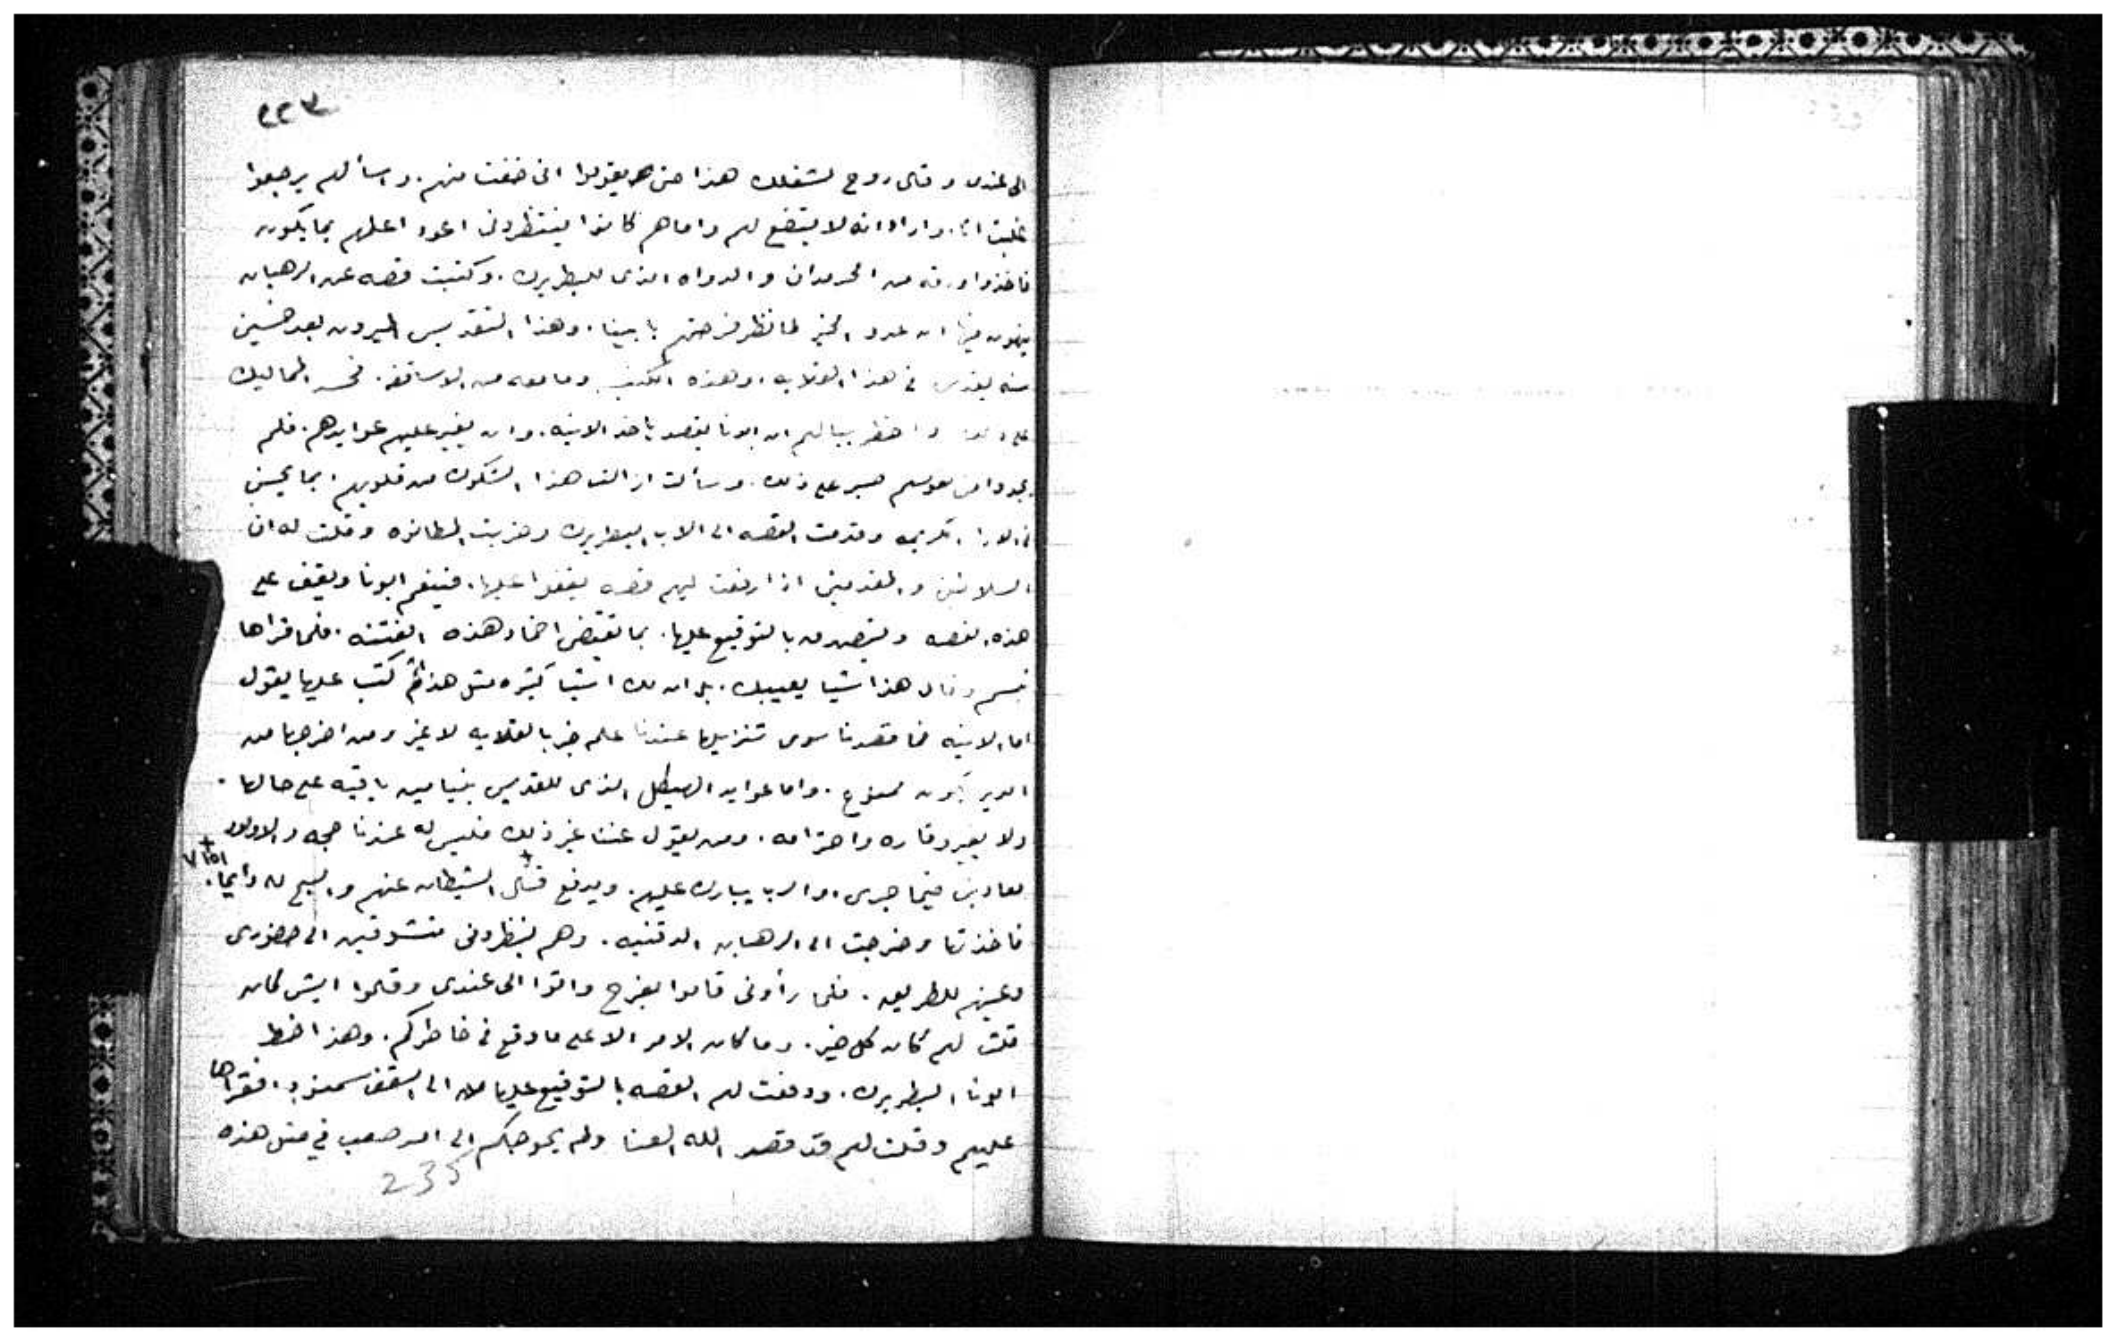 ٢٢٣
الى عندى وقال روح لشغلك هذا حتى يقولوا انى خفت منهم. واسألهم يرجعوا
انا. واراد انه لا يتضع لهم واما هم كانوا ينتظرونى اعود اعلمهم بما يكون
فاخذوا ورقه من الحرمدان والدواه الذى للبطريرك. وكتبت قصه عن الرهبان
ينهون فيها ان عدو الخير لما نظر فرحتهم بابينا. وهذا التقديس الميرون بعد خمسين
سنه يقدس فى هذا القلايه. وهذه وما معه من الاساقفه. نحن المماليك
واخطر ببالهم ان ابونا يقصد ياخذ الانيه. وان يغير عليهم عوايدهم. فلم
يجدوا فى نفوسهم صبر على ذلك. وسألت ازالت هذا الشكوك من قلوبهم بما يحسن
وقدمت القصه الى الاب البطريرك وضربت المطانوه وقلت له ان
السلاطين والمقدمين اذا رفعت اليهم قصه يقفوا عليها. فينعم ابونا ويقف على
هذه القصه بالتوقيع عليها. بما يقتضى اخماد هذه الفتنه. فلما قراها
تبسم وقال هذا شيا يعيبك. بل ان لك اشيا كثيره مثل هذه ثم كتب عليها يقول
اما الانيه فما قصدنا سوى تنزيلها عندنا علم خبر بالقلايه لا غير ومن اخرجها من
الدير يكون ممنوع. واما عوايد الهيكل الذى للقديس بنيامين باقيه على حالها.
ولا يغير وقاره واحترامه. ومن يقول عننا غير ذلك فليس له عندنا حجه والاولاد
فيما جرى. والرب يبارك عليهم. ويدفع الشيطان عنهم والسبح لله دايما.
فاخذتها وخرجت الى الرهبان الدقتيه. وهم ينتظرونى متشوقين الى حضورى
وعينهم للطريق. فلما رأونى قاموا بفرح واتوا الى عندى وقالوا ايش كان
قلت لهم كان كل خير. وما كان الامر الا على ما وقع فى خاطركم. وهذا خط
ابونا البطريرك. ودفعت لهم القصه بالتوقيع عليها الى اسقف سمنود فقراها
عليهم وقلت لهم قد قصد الله العنا ولم يحوجكم الى امر صعب في مثل هذه
235